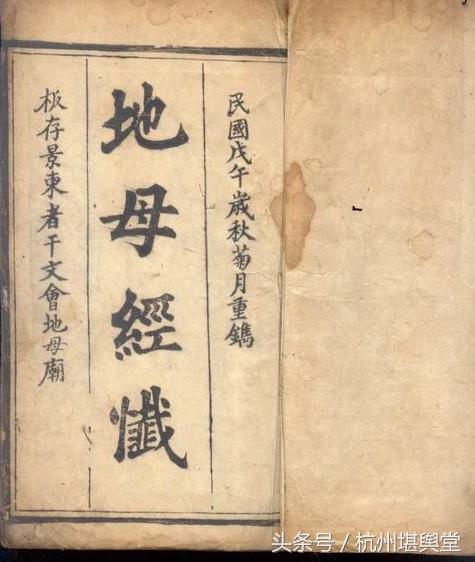 民國戊午歲秋菊月重鐫
地母經懺
板存景東者干文會地母廟
头条号 / 杭州堪舆堂